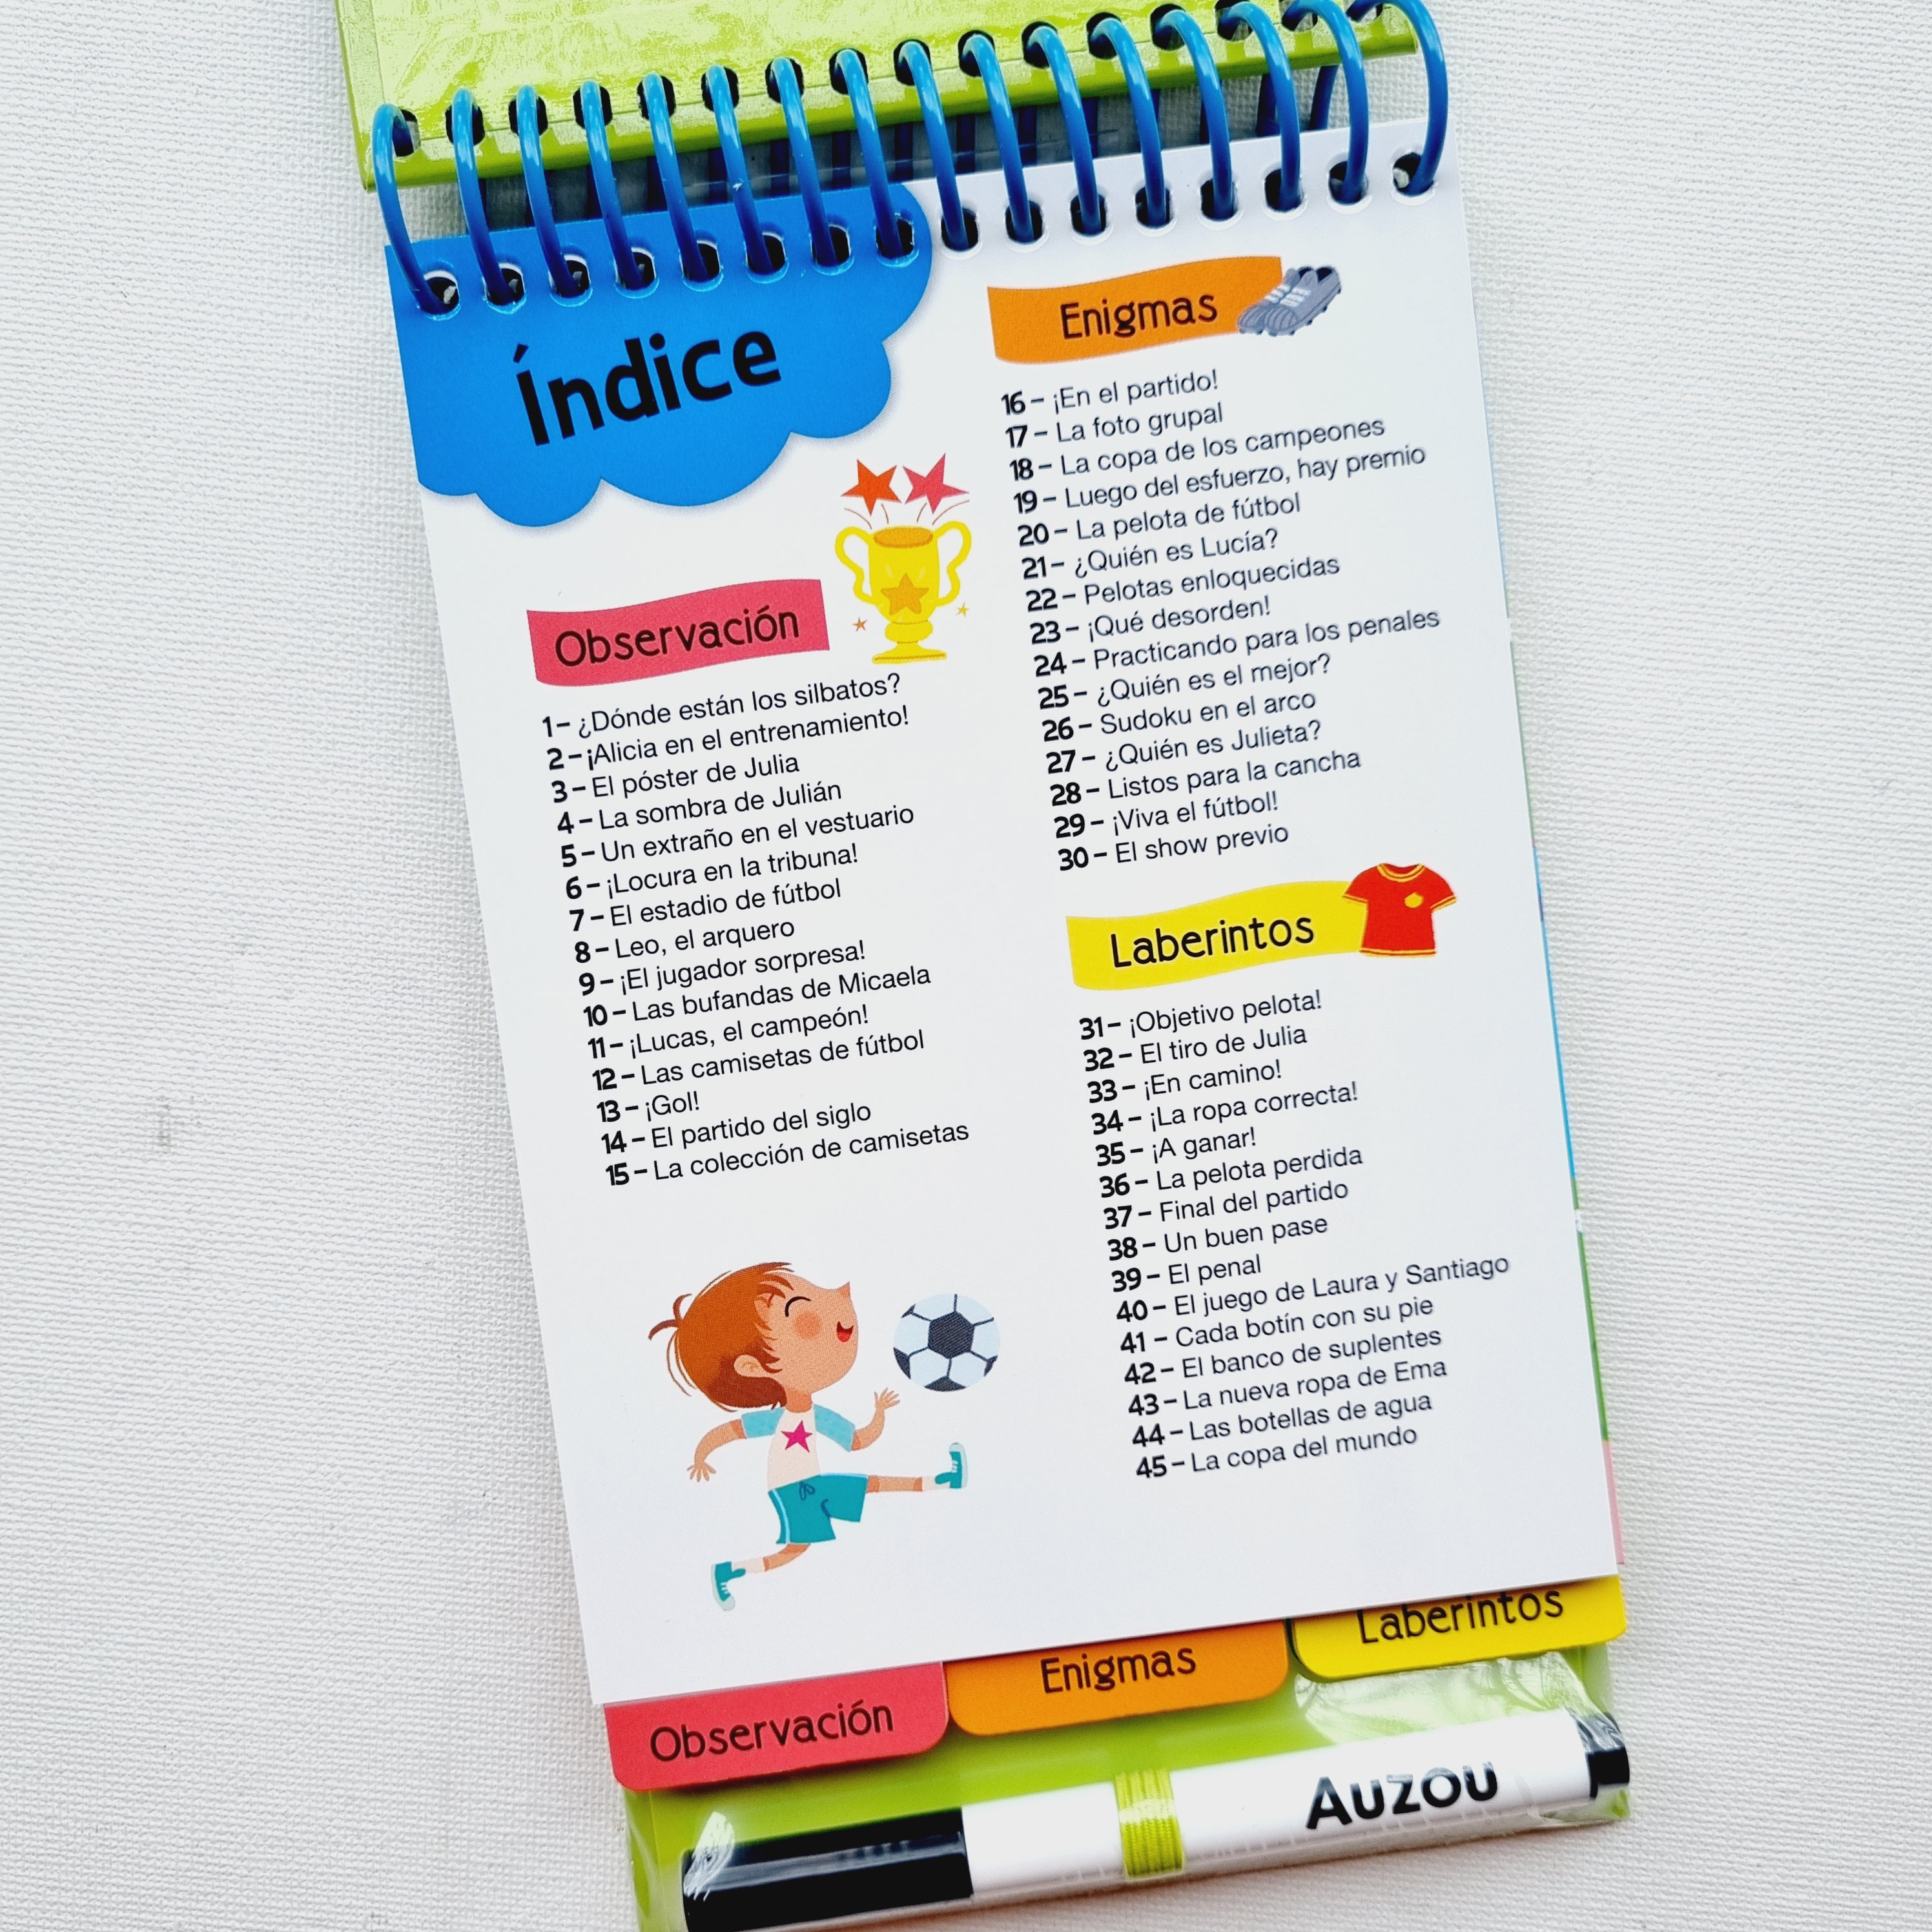 Índice
Observación
1 – ¿Dónde están los silbatos?
2 – ¡Alicia en el entrenamiento!
3 – El póster de Julia
4 – La sombra de Julián
5 – Un extraño en el vestuario
6 – ¡Locura en la tribuna!
7 – El estadio de fútbol
8 – Leo, el arquero
9 – ¡El jugador sorpresa!
10 – Las bufandas de Micaela
11 – ¡Lucas, el campeón!
12 – Las camisetas de fútbol
13 – ¡Gol!
14 – El partido del siglo
15 – La colección de camisetas
Enigmas
16 – ¡En el partido!
17 – La foto grupal
18 – La copa de los campeones
19 – Luego del esfuerzo, hay premio
20 – La pelota de fútbol
21 – ¿Quién es Lucía?
22 – Pelotas enloquecidas
23 – ¡Qué desorden!
24 – Practicando para los penales
25 – ¿Quién es el mejor?
26 – Sudoku en el arco
27 – ¿Quién es Julieta?
28 – Listos para la cancha
29 – ¡Viva el fútbol!
30 – El show previo
Laberintos
31 – ¡Objetivo pelota!
32 – El tiro de Julia
33 – ¡En camino!
34 – ¡La ropa correcta!
35 – ¡A ganar!
36 – La pelota perdida
37 – Final del partido
38 – Un buen pase
39 – El penal
40 – El juego de Laura y Santiago
41 – Cada botín con su pie
42 – El banco de suplentes
43 – La nueva ropa de Ema
44 – Las botellas de agua
45 – La copa del mundo
Observación
Enigmas
Laberintos
Auzou